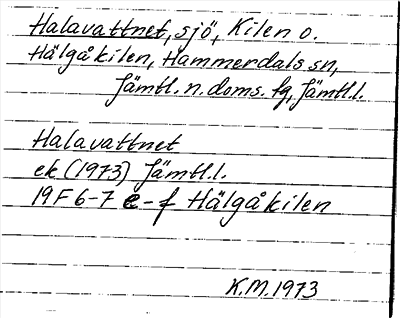 Halavattnet, sjö, Kilen o.
Hälgåkilen, Hammerdals sn,
Jämtl. n. doms. fg, Jämtl.l.
Halavattnet
ek (1973) Jämtl.l.
19F 6-7 e-f Hälgåkilen
K.M. 1973